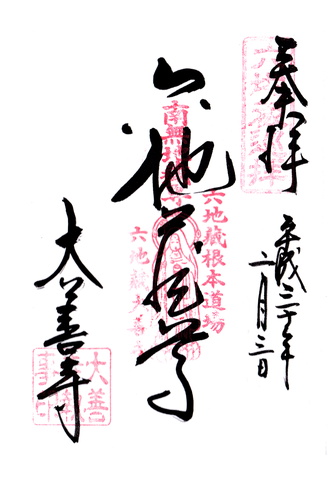 奉拝
平成三十年
二月三日
六地蔵尊
南無地蔵尊
六地蔵根本道場
六地蔵大善寺
大善寺
大善